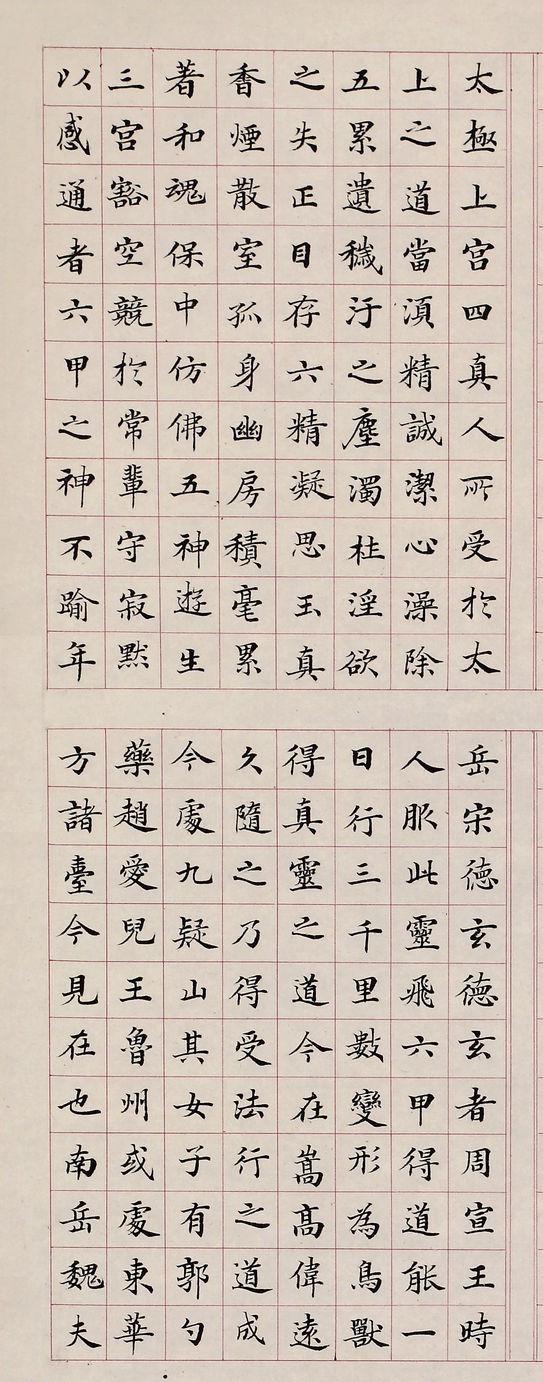 太極上宮四真人所受於太
上之道當湏精誠潔心澡除
五累遺穢汙之塵濁杜淫欲
之失正目存六精凝思玉真
香煙散室孤身幽房積毫累
著和魂保中仿佛五神遊生
三宮豁空競於常輩守寂黙
以感通者六甲之神不踰年
岳宋徳玄徳玄者周宣王時
人服此靈飛六甲得道能一
日行三千里數變形為鳥獸
得真靈之道今在嵩高偉遠
久隨之乃得受法行之道成
今處九疑山其女子有郭勺
藥趙愛兒王魯州或處東華
方諸臺今見在也南岳魏夫